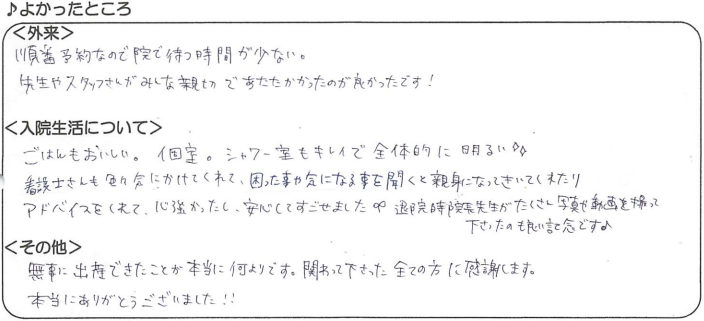 ♪よかったところ
＜外来＞
順番予約なので院で待つ時間が少ない。
先生やスタッフさんがみんな親切であたたかかったのが良かったです！
＜入院生活について＞
ごはんもおいしい。個室。シャワー室もキレイで全体的に明るい
看護士さんも色々気にかけてくれて、困った事や気になる事を聞くと親身になってきいてくれたり
アドバイスをくれて、心強かったし、安心してすごせました 退院時院長先生がたくさん写真や動画を撮って
下さったのも良い記念です♪
＜その他＞
無事に出産できたことが本当に何よりです。関わって下さった全ての方に感謝します。
本当にありがとうございました!!